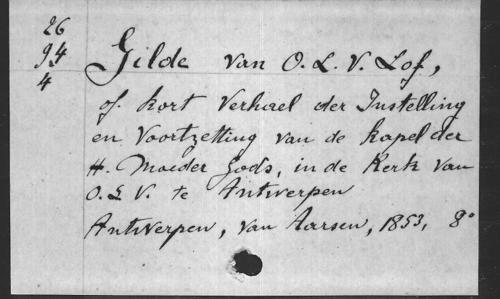 26
94
4
Gilde van O. L. V. Lof,
of kort Verhael der Instelling
en Voortzetting van de kapel der
H. Moeder Gods, in de Kerk van
O. L V. te Antwerpen
Antwerpen, van Aarsen, 1853, 8°